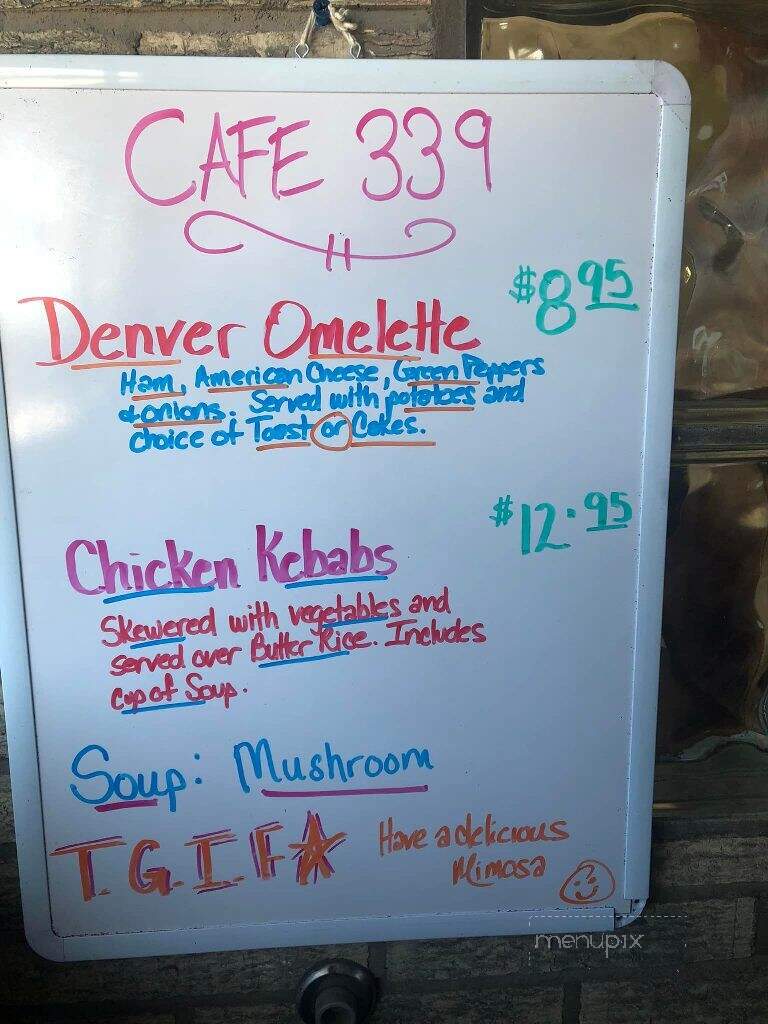 CAFE 339
$8 95
Denver Omelette
Ham, American Cheese, Green Peppers
& onions. Served with potatoes and
choice of Toast or Cakes.
$12.95
Chicken Kebabs
Skewered with vegetables and
served over Butter Rice. Includes
cup of Soup.
Soup: Mushroom
T.G.I.F
Have a delicious
Mimosa
menupix